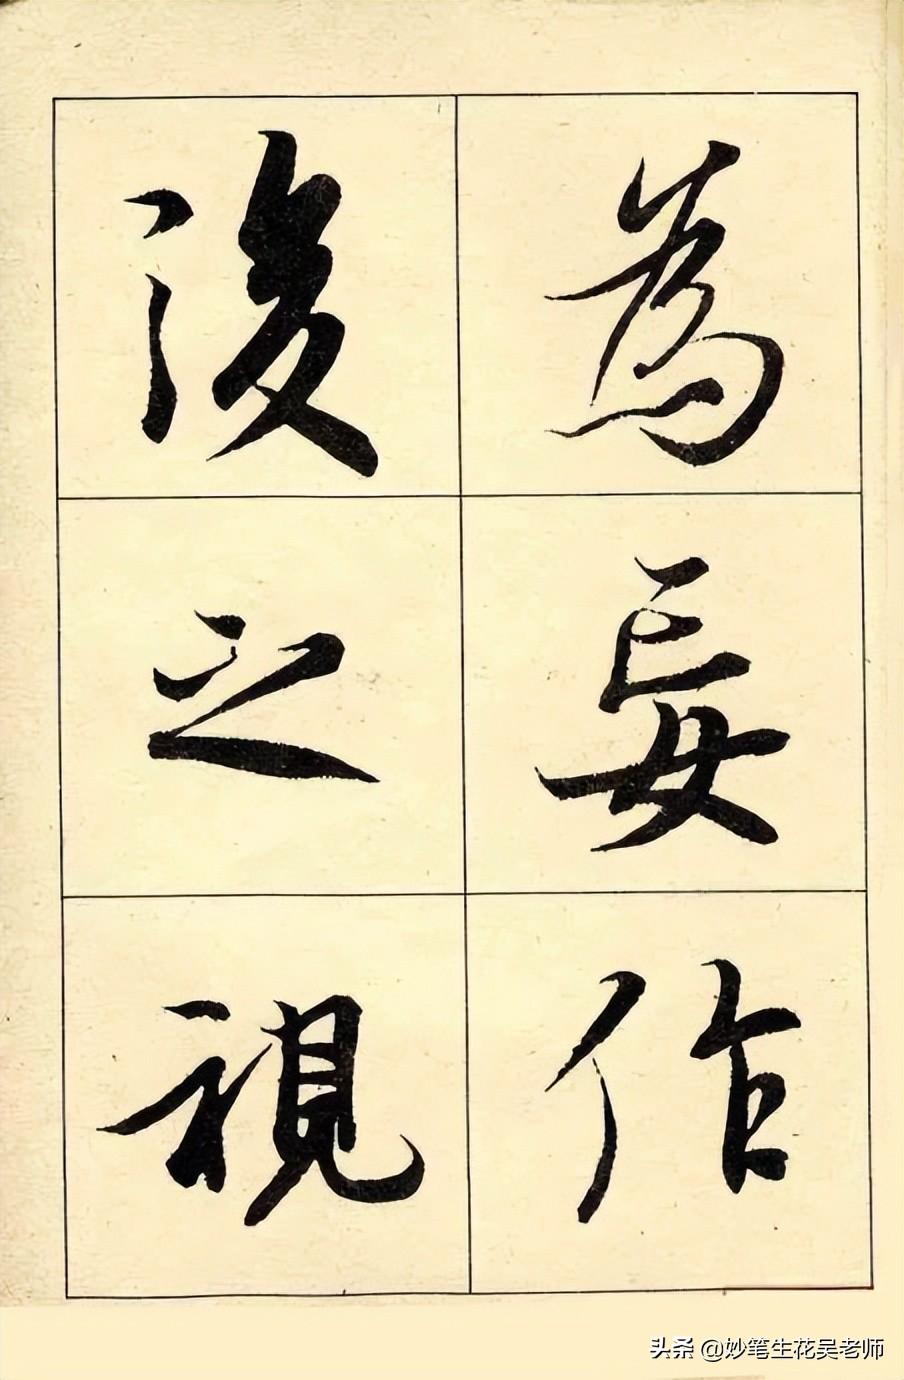 為妄作
後之視
头条 @妙笔生花吴老师